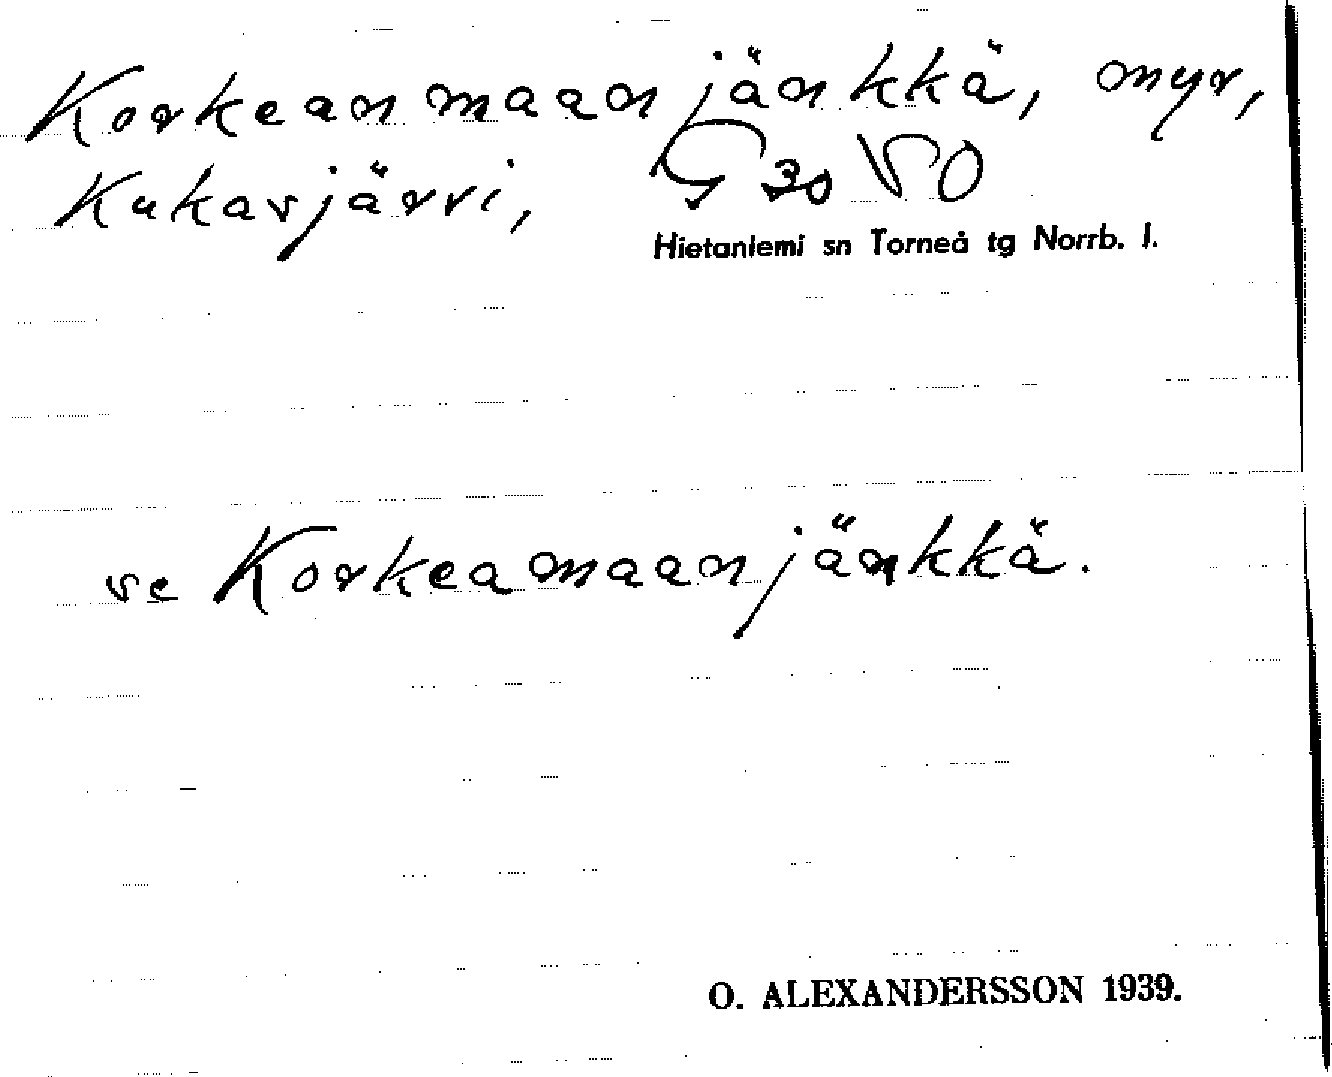 Korkeanmaanjänkkä, myr,
Kukasjärvi, G 30 SO
Hietaniemi sn Torneå tg Norrb. l.
se Korkeamaanjänkkä.
O. ALEXANDERSSON 1939.